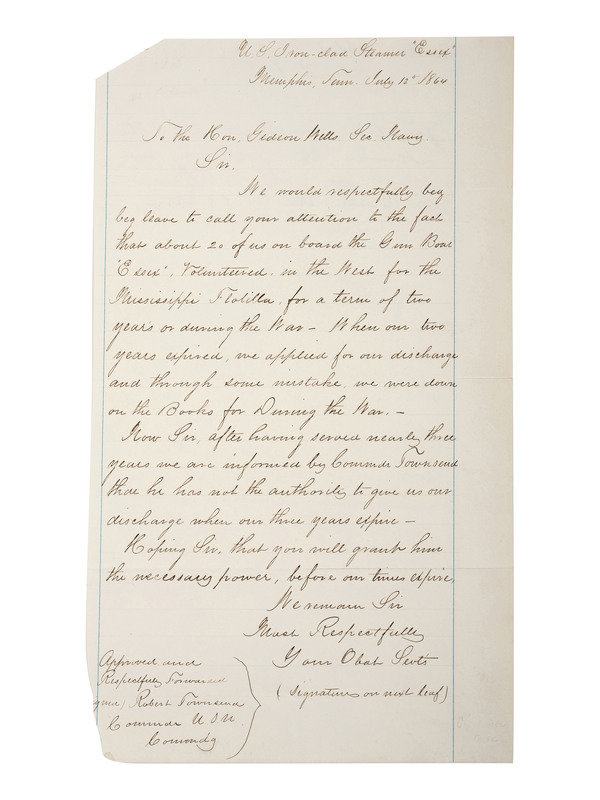 U. S. Iron-clad Steamer "Essex"
Memphis, Tenn. July 12" 1864
To the Hon, Gideon Wells Sec Navy.
Sir.
We would respectfully beg
beg leave to call your attention to the fact
that about 20 of us on board the Gun Boat
"Essex", Volunteered, in the West for the
Mississippi Flotilla, for a term of two
years or during the War – When our two
years expired, we applied for our discharge
and through some mistake, we were down
on the Books for During the War. –
Now Sir, after having served nearly three
years we are informed by Commdr Townsend
that he has not the authority to give us our
discharge when our three years expire –
Hoping Sir, that you will grant him
the necessary power, before our times expire,
We remain Sir
Most Respectfully
Your Obdt Servts
(Signatures on next leaf)
Approved and
Respectfully Forwarded
Robert Townsend
Commdr U S N.
Comondg